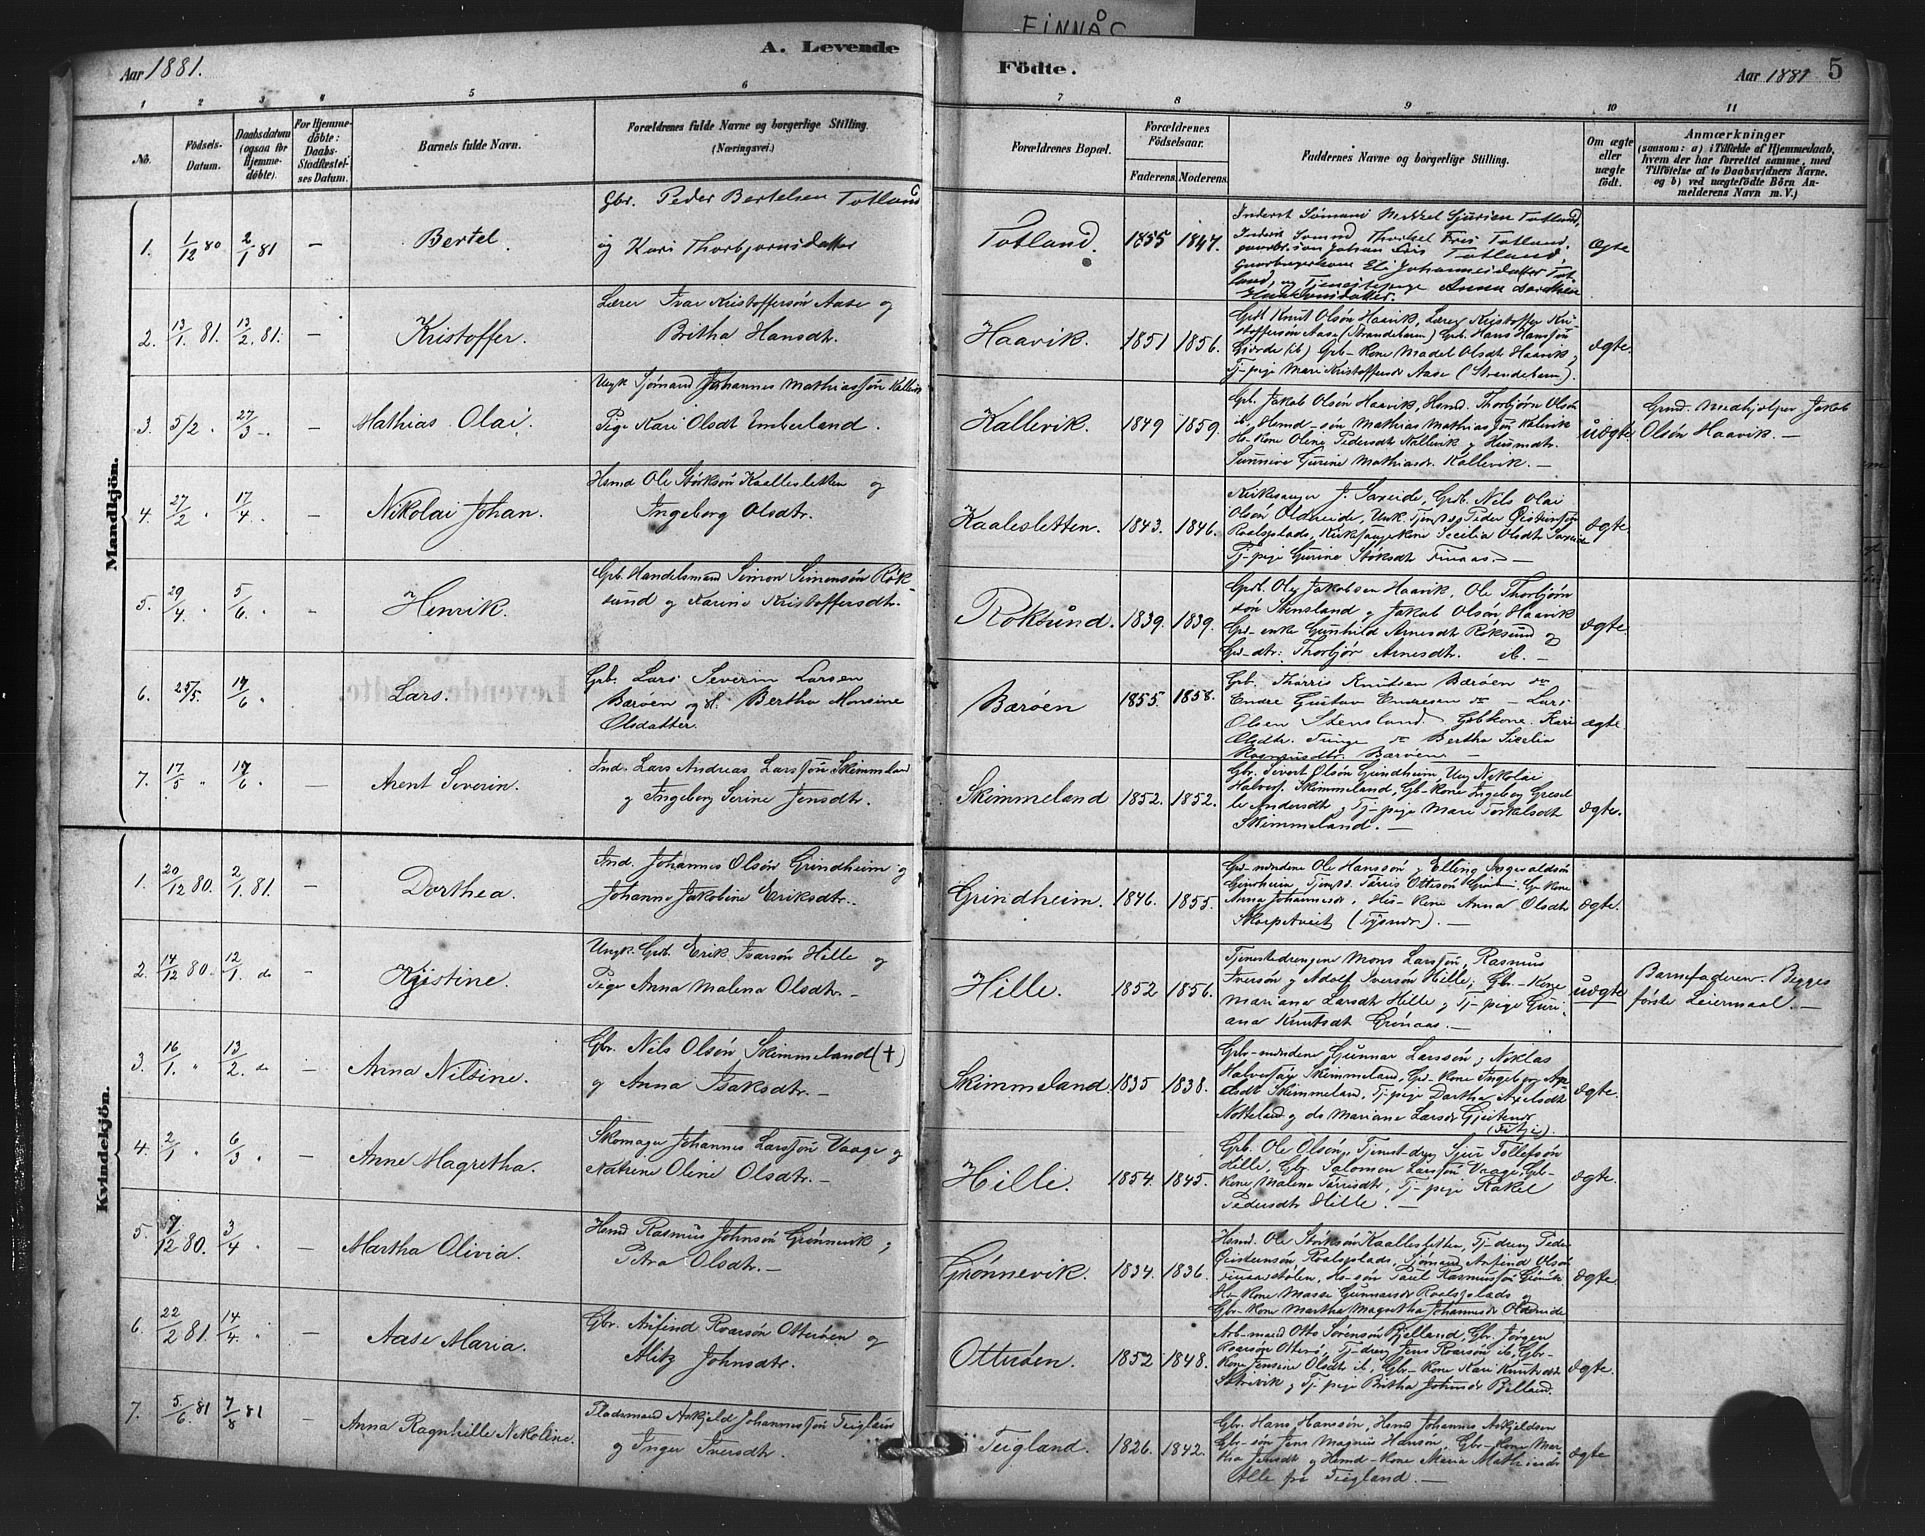 FINNÅS
Aar 1881.
A. Levende
Födte.
Aar 1881
5
1 2 3 4 5 6 7 8 9 10 11
No.
Födsels-
Datum.
Daabsdatum
(ogsaa for
Hjemme-
döbte).
For Hjemme-
döbte:
Daabs-
Stadfæstel-
ses Datum.
Barnets fulde Navn.
Forældrenes fulde Navne og borgerlige Stilling.
(Næringsvei.)
Forældrenes Bopæl.
Forældrenes
Födselsaar.
Faderens. Moderens.
Faddernes Navne og borgerlige Stilling.
Om ægte
eller
uægte
födt.
Anmærkninger
(saasom: a) i Tilfælde af Hjemmedaab,
hvem der har forrettet samme, med
Tilföielse af to Daabsvidners Navne.
og b) ved uægtefödte Börn An-
melderens Navn m. V.)
Mandkjön.
1. 1/12 80 2/1 81 —
Bertel.
Gbr. Peder Bertelsen Totland
og Kari Thorbjørnsdatter
Totland. 1855 1847.
ægte
2. 13/1 81. 13/2 81. —
Kristoffer.
Lærer Ivar Kristoffersön Aase og
Britha Hansdtr.
Haavik. 1851 1856.
Grdb. Knut Olsön Haavik, Lærer Kristoffer Kri-
stoffersön Aase (Strandebarm) Grb. Hans Hanssön
Gjerde (ib) Grb-kone Madel Olsdt Haavik
Tj-pige Mari Kristoffersdr Aase (Strandebarm).
ægte.
3. 5/2 " 27/3 " —
Mathias Olai.
Ungk Sjømand Johannes Mathiassön Kallevik
Pige Kari Olsdt Emberland.
Kallevik. 1849 1859.
Grb. Jakob Olsön Haavik, Hsmd. Thorbjørn Olsön
ib, Hsmd-sön Mathias Mathiassön Kalevik
H-kone Olene Pedersdt Kallevik og Husmdtr.
Sunniva Gurine Mathiasdr. Kallevik. —
uægte
Grund. Medhjelper Jakob
Olsön Haavik. —
4. 27/2 " 17/4 " —
Nikolai Johan.
Hsmd Ole Störksön Kaallesletten og
Ingeborg Olsdtr.
Kaalesletten. 1843. 1846.
Kirkesanger J. Saxeide, Grdb. Nils Olai
Olsön Oldereide, Unk. Tjngtdg Peder Öistensön
Roalsplads, Kirkesangerkone Secilia Olsdt Saxeide
Tj-pige Gurine Störksdt Finaas. —
ægte.
5. 29/4 " 5/6 "
Henrik.
Grb. Handelsmand Simon Simonsön Rök-
sund og Karine Kristoffersdtr.
Roksund. 1839. 1839.
Grdb. Ole Jakobsen Haavik, Ole Thorbjörn
sön Stensland og Jakob Olsön Haavik
Grd-enke Gunhild Arnesdt Roksund og
Grd-dtr: Thorbjör Arnesdtr. ib. —
ægte.
6. 25/5. 19/6 "
Lars.
Grb. Lars Severin Larsen
Bærøen og H. Bertha Monsine
Olsdatter.
Bærøen 1855. 1858.
Grb. Thorris Knutsen Bærøen do
Endre Gustav Endresen do — Lars
Olsen Stensland, Gbkone Kari
Olsdtr. Tunge do Bertha Sicelia
Rasmusdtr. Bærøen —
ægte
7. 17/5 " 19/6 " —
Arent Severin.
Ind. Lars Andreas Larssön Skimmeland
og Ingeborg Serine Jensdtr.
Skimmeland 1852. 1852.
Gbr. Sivert Olsön Grindheim, Ung Nikolai
Halvors. Skimmeland, Gb-kone Ingeborg Gresel-
le Andersdt og Tj-pige Mari Torkelsdt
Skimmeland. —
ægte.
Kvindekjön.
1. 20/12 80. 2/1 81. —
Dorthea.
Ind. Johannes Olsön Grindheim og
Johanne Jakobine Eriksdtr.
Grindheim. 1846. 1855.
Grd-mændene Ole Hanssön og Elling Ingevaldsön
Grindheim, Tjngtd. Törris Ottesön Grindh. Gr kone
Anna Johannesdr, Hus-kone Anna Olsdt
Skorpetveit (Tysnes). —
ægte.
2. 14/12 80. 12/1. do —
Kristine.
Ungk. Grb. Erik Ivarsön Hille og
Pige Anna Malena Olsdtr. —
Hille. 1852 1856.
Tjenestedrengene Mons Larssön, Rasmus
Iversön og Adolf Iversön Hille, Gbr-kone
Mariana Larsdt Hille og Tj-pige Guri-
ana Knutsdt Grönaas. —
uægte
Barnefaderen. Begges
første Leiermaal. —
3. 16/1. " 13/2. do —
Anna Nilsine.
Gbr. Nils Olsön Skimmeland (†)
og Anna Isaksdtr. —
Skimmeland. 1835 1838.
Gbr-mændene Gunnar Larssön, Niklas
Halvorsön Skimmeland, Gb-kone Ingeborg Ax-
elsdt Skimmeland, Tj-pige Dortha Axelsdt
Notteland og do Mariane Larsdr Gjeitanes
(Fitje).
ægte.
4. 2/1 " 6/3 " —
Anne Magretha.
Skomager Johannes Larssön Vaage og
Natrine Olene Olsdtr. —
Hille. 1854. 1845.
Grb. Ole Olsön, Tjenst-dreng Sjur Tollefsön
Hille, Gbr. Salomon Larssön Vaage, Gb-
kone Malena Törrisdtr, Tj-pige Rakel
Pedersdt Hille. —
ægte.
5. 7/12 80. 3/4 " —
Martha Olivia.
Hsmd Rasmus Johnsön Grönnevik og
Petra Olsdtr. —
Grönnevik. 1834. 1836.
Hsmd. Ole Störksön Kaallesletten, Tj-dreng Peder
Öisteinsön, Roalsplads, Sjömand Arfind Olsön
Finaasstölen, Hs-sön Paul Rasmussön Grönnevik
Hs-kone Massa Gunnarsdt Roalsplads og
Gbr-kone Martha Magretha Johannesdr Oldereide
ægte.
6. 22/2 81. 14/4. " —
Aase Maria.
Gbr. Anfind Roarsön Otterøen og
Alitz Johnsdtr.
Otterøen. 1852 1848.
Arb-mand Otto Sörensön Kjelland, Gbr. Jörgen
Roarsön Otterö, Tj-dreng Jens Roarsön ib, Gbr-
kone Jensine Olsdt ib, Gbr-kone Kari Knutsdt
Sætrevik og Tj pige Britha Johnsdr Bjelland.
ægte.
7. 5/6. 81 7/8 81 —
Anna Ragnhille Nikoline.
Pladsmand Askjeld Johannessön Teigland
og Inger Iversdt.
Teigland. 1826. 1842.
Gbr. Hans Hanssön, Hsmd Johannes Askjeldsen
Gbr-sön Jens Magnus Hansön, Gbr-kone Mar-
tha Jensdt og Hsmd-kone Maria Mathiasdr
Alle fra Teigland. —
ægte